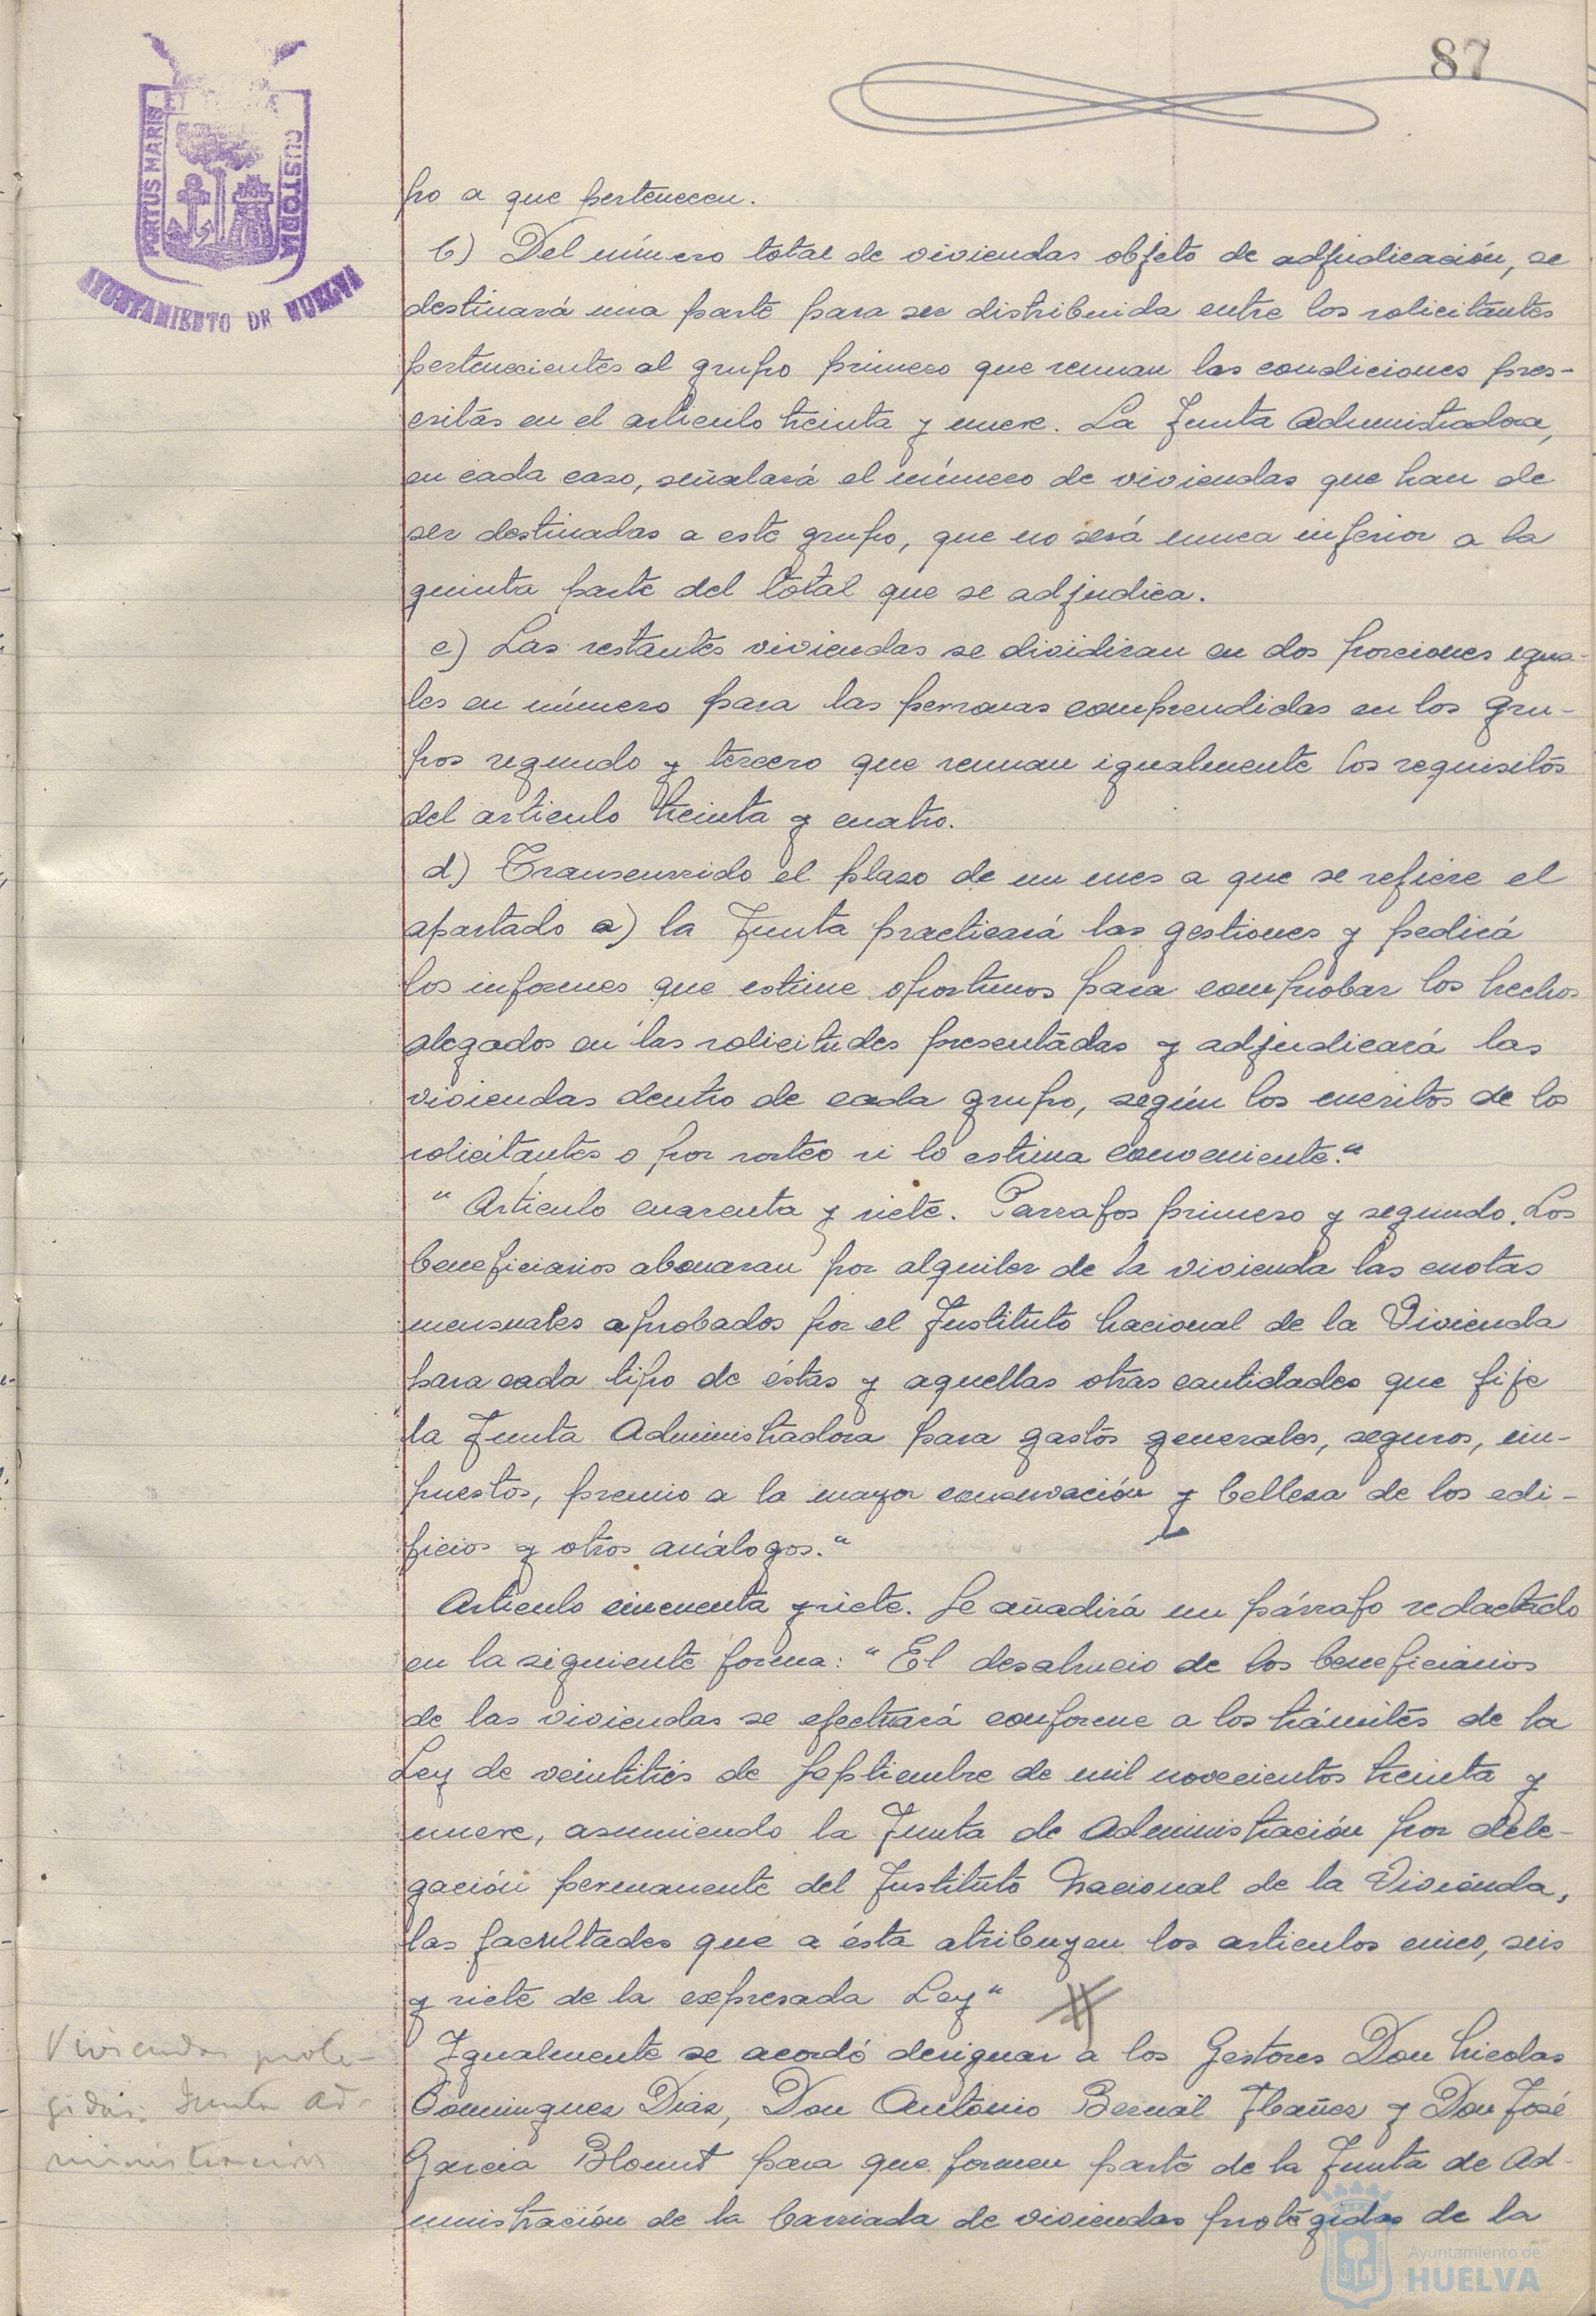 87
PORTUS MARIS
ET TERRAE
CUSTODIA
AYUNTAMIENTO DE HUELVA
po a que pertenecen.
b) Del número total de viviendas objeto de adjudicación, se
destinará una parte para ser distribuida entre los solicitantes
pertenecientes al grupo primero que reunan las condiciones pres-
critas en el articulo treinta y nueve. La Junta Administradora,
en cada caso, señalará el número de viviendas que han de
ser destinadas a este grupo, que no será nunca inferior a la
quinta parte del total que se adjudica.
c) Las restantes viviendas se dividiran en dos porciones igua-
les en número para las personas comprendidas en los gru-
pos segundo y tercero que reunan igualmente los requisitos
del articulo treinta y cuatro.
d) Transcurrido el plazo de un mes a que se refiere el
apartado a) la Junta practicará las gestiones y pedirá
los informes que estime oportunos para comprobar los hechos
alegados en las solicitudes presentadas y adjudicará las
viviendas dentro de cada grupo, según los meritos de los
solicitantes o por sorteo si lo estima conveniente."
" Articulo cuarenta y siete. Parrafos primero y segundo. Los
beneficiarios abonaran por alquiler de la vivienda las cuotas
mensuales aprobados por el Instituto nacional de la Vivienda
para cada tipo de éstas y aquellas otras cantidades que fije
la Junta Administradora para gastos generales, seguros, im-
puestos, premio a la mayor conservación y belleza de los edi-
ficios y otros análogos."
Articulo cincuenta y siete. Se añadirá un párrafo redactado
en la siguiente forma: " El desahucio de los beneficiarios
de las viviendas se efectuará conforme a los trámites de la
Ley de veintitrés de Septiembre de mil novecientos treinta y
nueve, asumiendo la Junta de Administración por dele-
gación permanente del Instituto Nacional de la Vivienda,
las facultades que a ésta atribuyen los articulos cinco, seis
y siete de la expresada Ley"
Viviendas prote-
gidas. Junta Ad-
ministración
Igualmente se acordó designar a los Gestores Don Nicolas
Dominguez Diaz, Don Antonio Bernal Ibañez y Don José
Garcia Blount para que formen parte de la Junta de Ad-
ministración de la barriada de viviendas protegidas de la
Ayuntamiento de
HUELVA